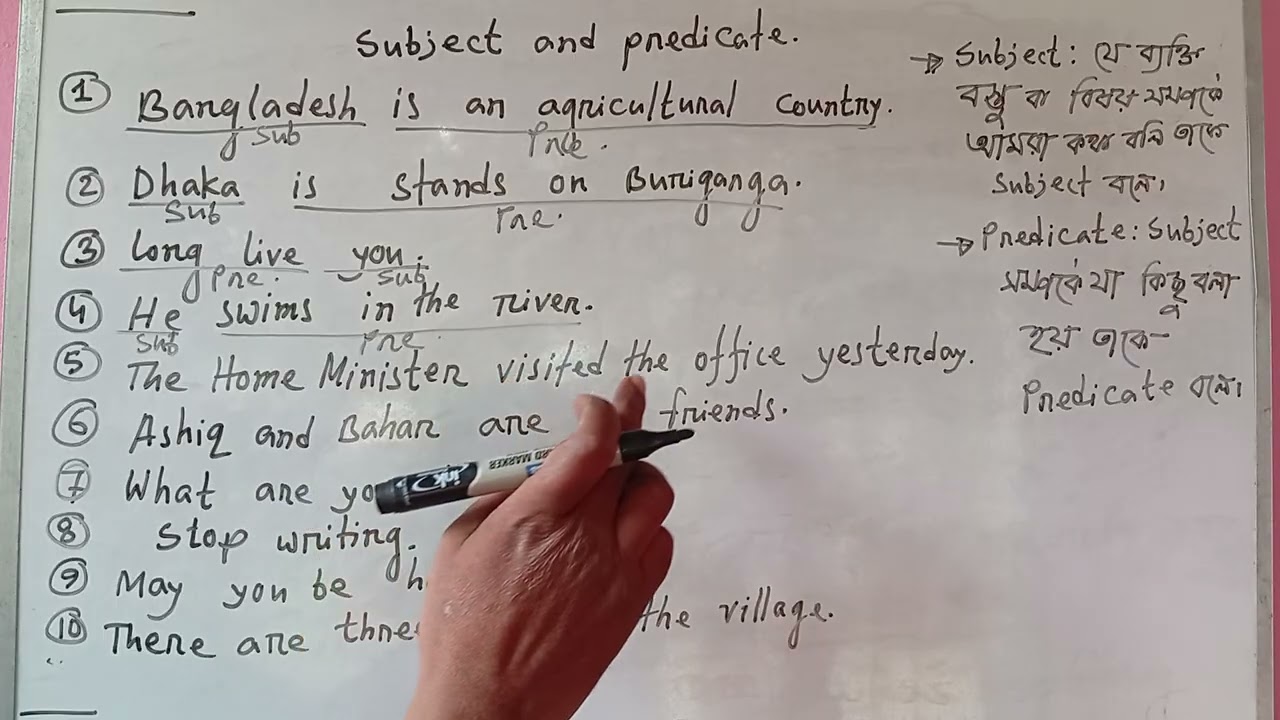 Subject and predicate.
① Bangladesh is an agricultural country.
sub Pre.
② Dhaka is stands on Buriganga.
Sub Pre.
③ Long live you.
Pre. sub
④ He swims in the river.
Sub Pre.
⑤ The Home Minister visited the office yesterday.
⑥ Ashiq and Bahar are friends.
⑦ What are
⑧ Stop writing.
⑨ May you be
⑩ There are the village.
→ Subject: যে ব্যক্তি
বস্তু বা বিষয় সম্পর্কে
আমরা কথা বলি তাকে
Subject বলে।
→ Predicate: Subject
সম্পর্কে যা কিছু বলা
হয় তাকে-
Predicate বলে।
ink
BOARD MARKER